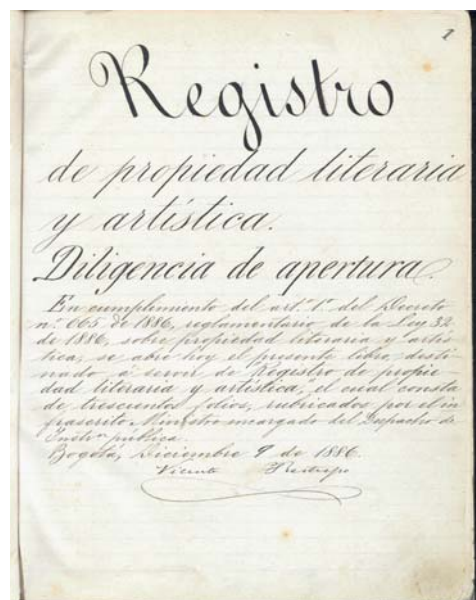 1
Registro
de propiedad literaria
y artística.
Diligencia de apertura.
En cumplimiento del art.º 1.º del Decreto
n.º 665 de 1886, reglamentario de la Ley 32
de 1886, sobre propiedad literaria y artís-
tica, se abre hoy el presente libro, desti-
nado á servir de "Registro de propie-
dad literaria y artística," el cual consta
de trescientos folios, rubricados por el in-
frascrito Ministro encargado del Despacho de
Instrn pública.
Bogotá, Diciembre 9 de 1886.
Vicente Restrepo